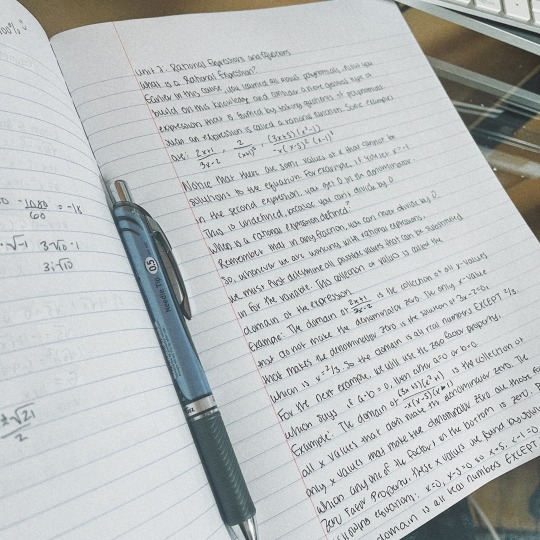 100%
-1080/60 = -18
·√-1 3√10·i
3i√10
±√21/2
0.5
Needle Tip 0.5
Unit 7: Rational Expressions and Equations
What is a Rational Expression?
Earlier in this course, you learned all about polynomials. Now you
build on this knowledge and consider a more general type of
expression that is formed by taking quotients of polynomials.
Such an expression is called a rational function. Some examples
are: 2x+1/3x-2, 2/(x+1)², (3x+5)(x²-1)/-x(x-5)²(x-1)³
Notice that there are some values of x that cannot be
solutions to the equation. For example, if you let x=-1
in the second expression, you get 0 in the denominator.
This is undefined, because you can't divide by 0.
When is a rational expression defined?
Remember that in any fraction, you can never divide by 0.
So, whenever we are working with rational expressions,
we must first determine all possible values that can be substituted
in for the variable. This collection of values is called the
domain of the expression.
Example: The domain of 2x+1/3x-2 is the collection of all x-values
that do not make the denominator zero. The only x-value
that makes the denominator zero is the solution of 3x-2=0,
which is x=2/3. So the domain is all real numbers EXCEPT 2/3.
For the next example, we will use the zero factor property,
which says, if a·b=0, then either a=0 or b=0.
Example: The domain of is the collection of
all x values that don't make the denominator zero. The
only x values that make the denominator zero are those for
which any one of the factors in the bottom is zero. By
Zero Factor Property, these x values are found by solving
equations: x=0, x-5=0 so x=5, x-1=0
domain is all real numbers EXCEPT